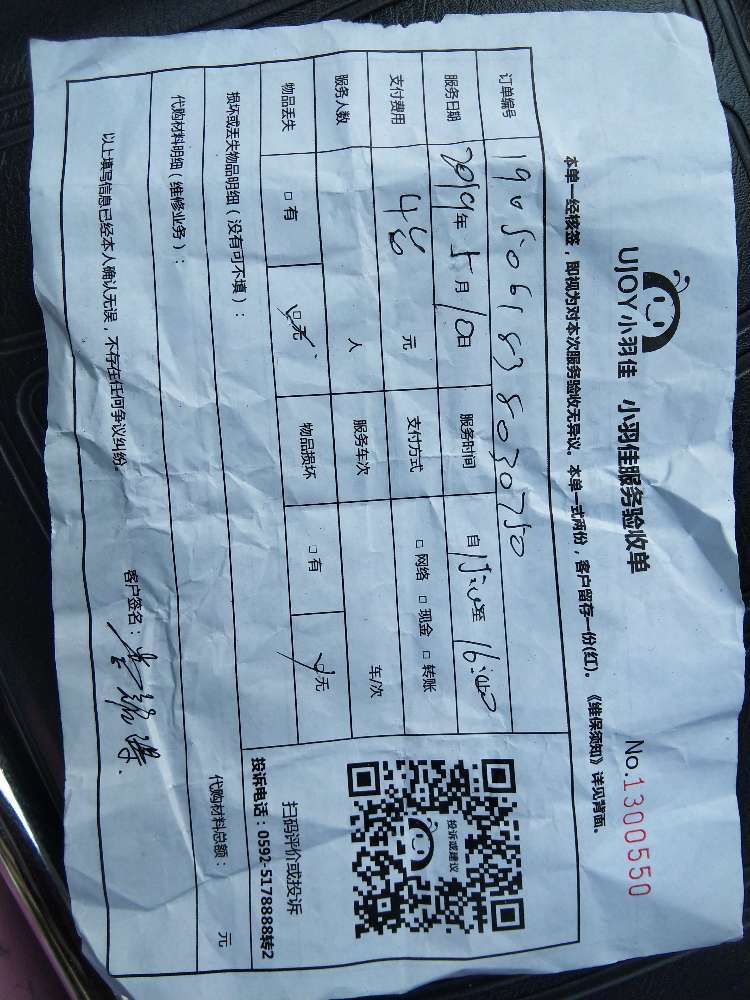 UJOY小羽佳 小羽佳服务验收单 No.1300550
本单一经核签，即视为对本次服务验收无异议。本单一式两份，客户留存一份(红)。《维保须知》详见背面。
订单编号
服务日期 2019年5月10日 服务时间 自15:00至16:00
支付费用 元 支付方式 □网络 □现金 □转账
服务人数 人 服务车次 车/次
物品丢失 □有 □无 物品损坏 □有 □无
损坏或丢失物品明细（没有可不填）：
代购材料明细（维修业务）： 代购材料总额： 元
以上填写信息已经本人确认无误，不存在任何争议纠纷。 客户签名：
投诉或建议
扫码评价或投诉
投诉电话：0592-5178888转2